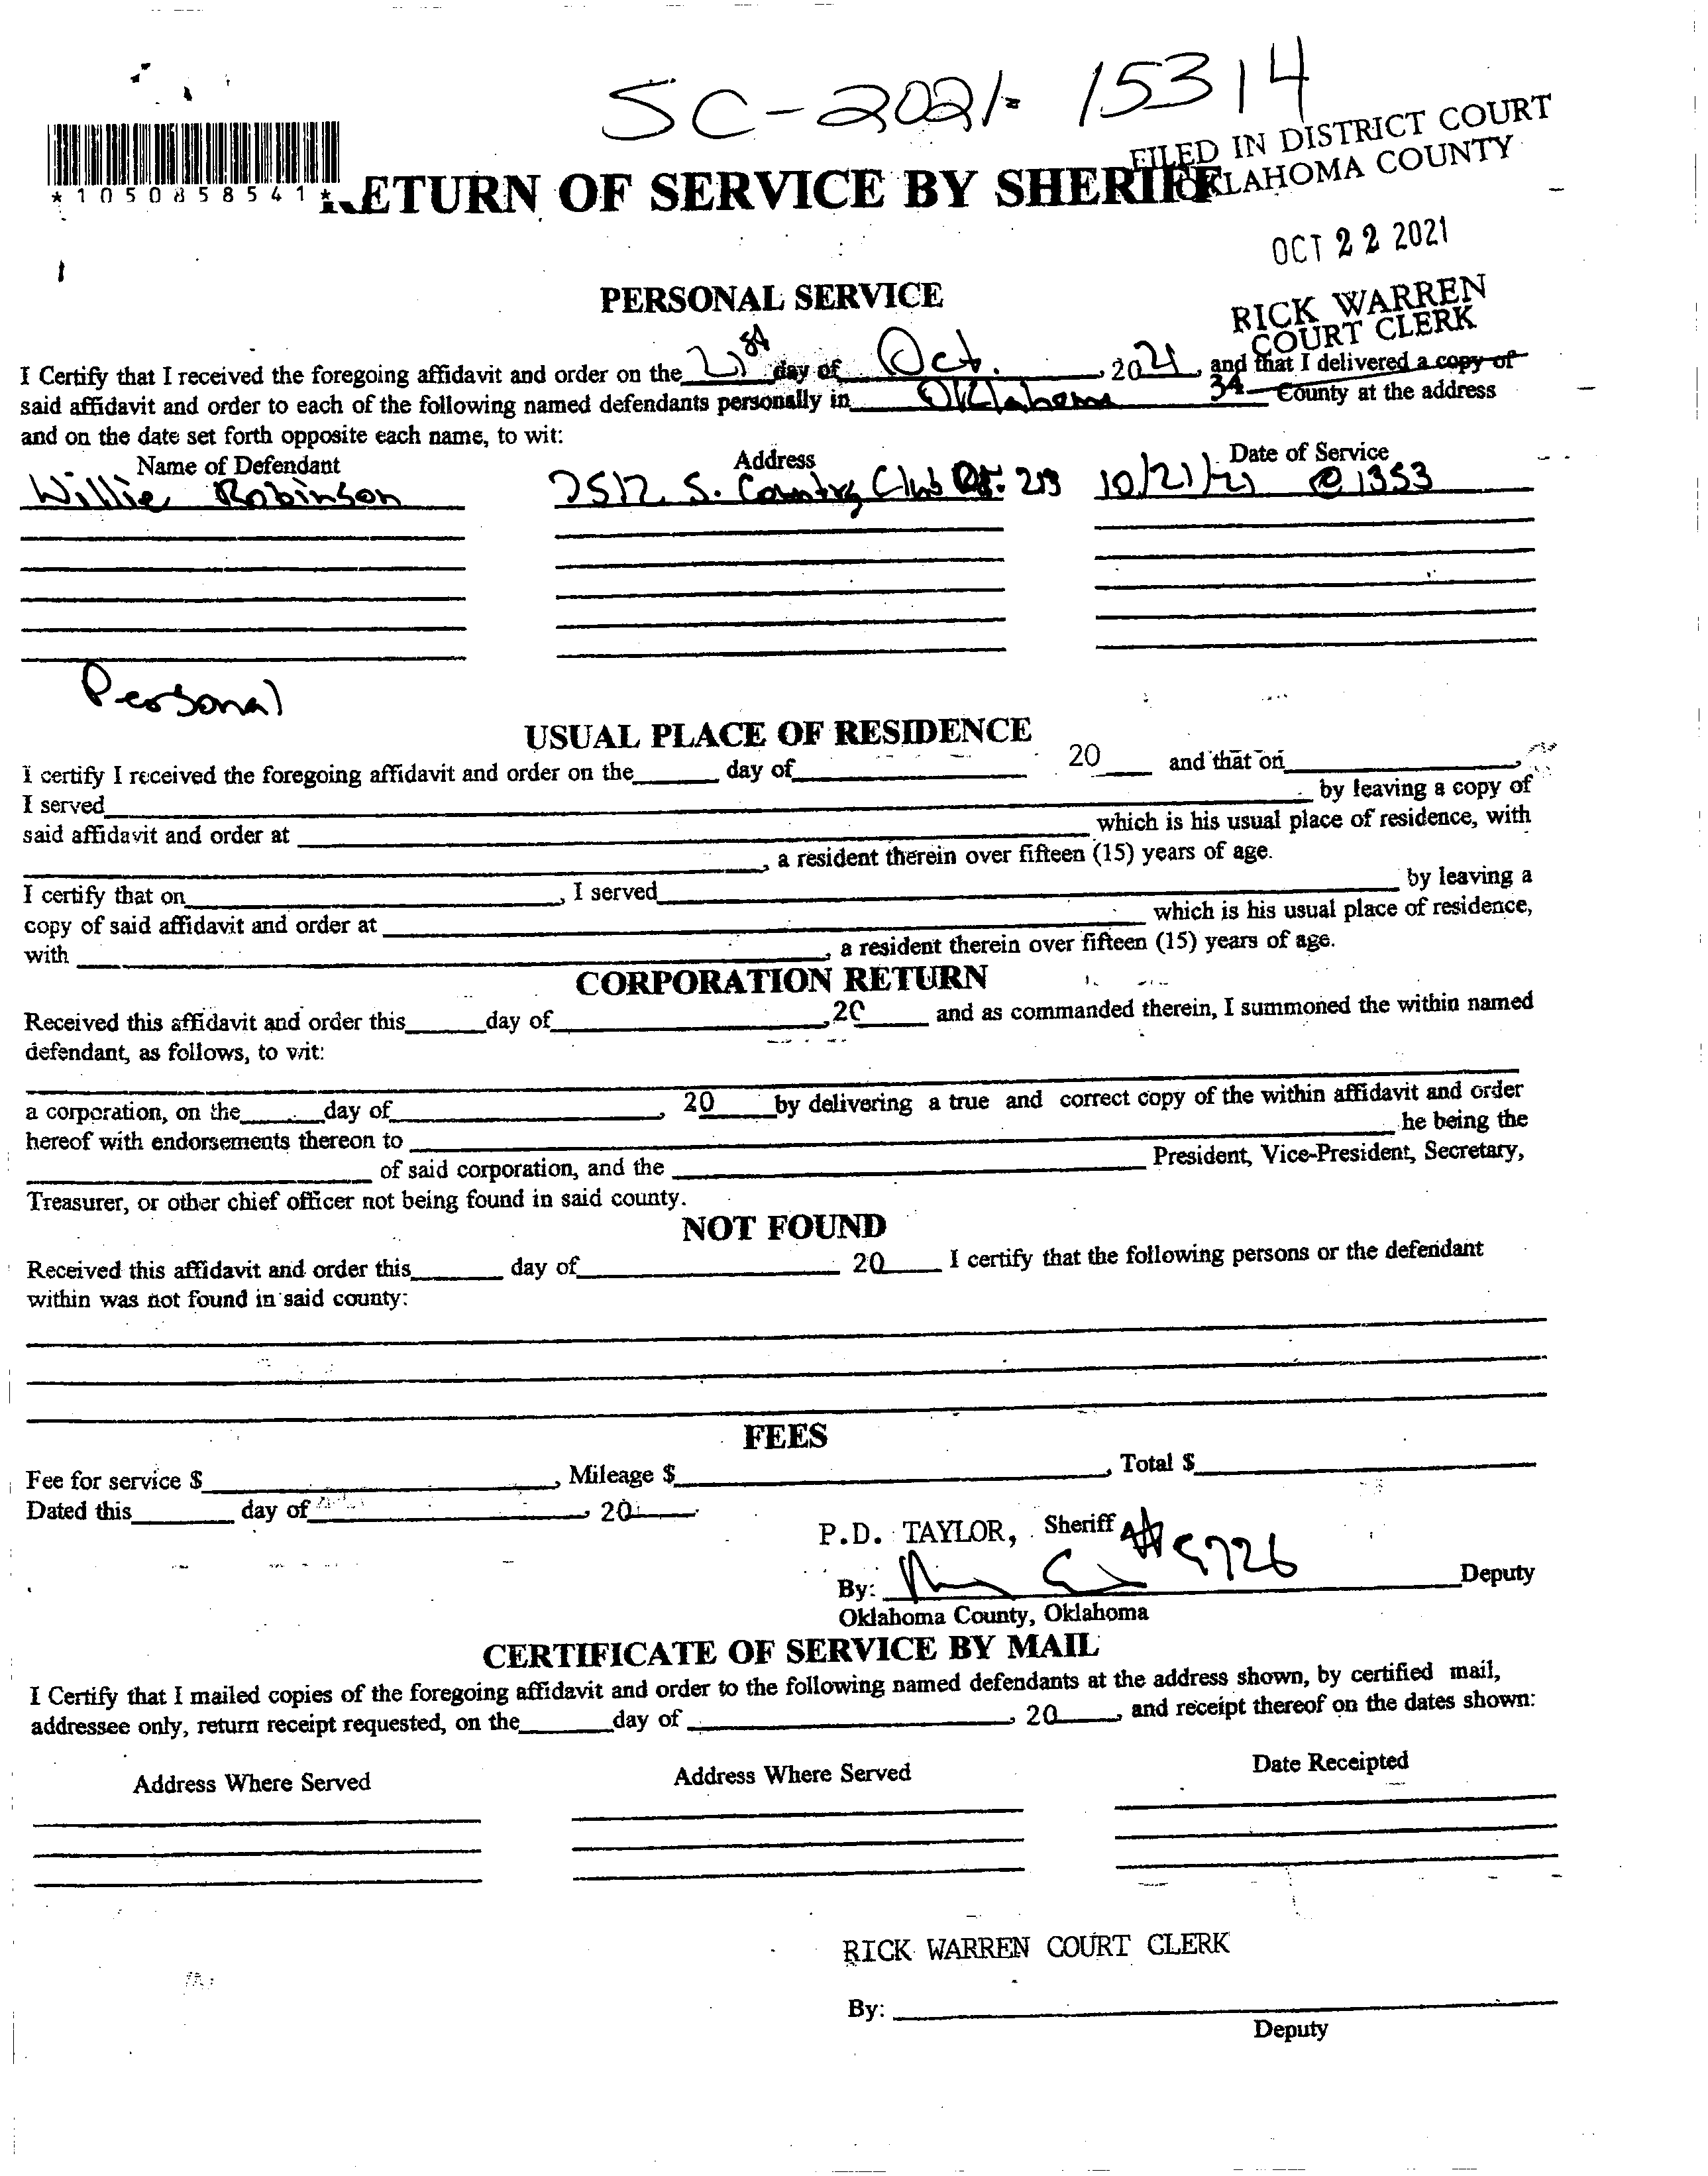 SC-2021-15314
FILED IN DISTRICT COURT
OKLAHOMA COUNTY
*1050858541*
RETURN OF SERVICE BY SHERIFF
OCT 22 2021
RICK WARREN
COURT CLERK
PERSONAL SERVICE
I Certify that I received the foregoing affidavit and order on the 21st day of Oct. , 2021, and that I delivered a copy of
said affidavit and order to each of the following named defendants personally in Oklahoma 34 County at the address
and on the date set forth opposite each name, to wit:
Name of Defendant Address Date of Service
Willie Robinson S. Country Club 213 10/21/21 @ 1353
Personal
USUAL PLACE OF RESIDENCE
I certify I received the foregoing affidavit and order on the______ day of______ 20____ and that on______
I served______ by leaving a copy of
said affidavit and order at ______ which is his usual place of residence, with
______, a resident therein over fifteen (15) years of age.
I certify that on______, I served______ by leaving a
copy of said affidavit and order at ______ which is his usual place of residence,
with ______, a resident therein over fifteen (15) years of age.
CORPORATION RETURN
Received this affidavit and order this______day of______,20______ and as commanded therein, I summoned the within named
defendant, as follows, to wit:
a corporation, on the______day of______, 20____by delivering a true and correct copy of the within affidavit and order
hereof with endorsements thereon to ______ he being the
______ of said corporation, and the ______ President, Vice-President, Secretary,
Treasurer, or other chief officer not being found in said county.
NOT FOUND
Received this affidavit and order this______ day of______ 20____ I certify that the following persons or the defendant
within was not found in said county:
FEES
Fee for service $______, Mileage $______, Total $______
Dated this______ day of______, 20____
P.D. TAYLOR, Sheriff
By: ______Deputy
Oklahoma County, Oklahoma
CERTIFICATE OF SERVICE BY MAIL
I Certify that I mailed copies of the foregoing affidavit and order to the following named defendants at the address shown, by certified mail,
addressee only, return receipt requested, on the______day of ______, 20____, and receipt thereof on the dates shown:
Address Where Served Address Where Served Date Receipted
RICK WARREN COURT CLERK
By: ______
Deputy